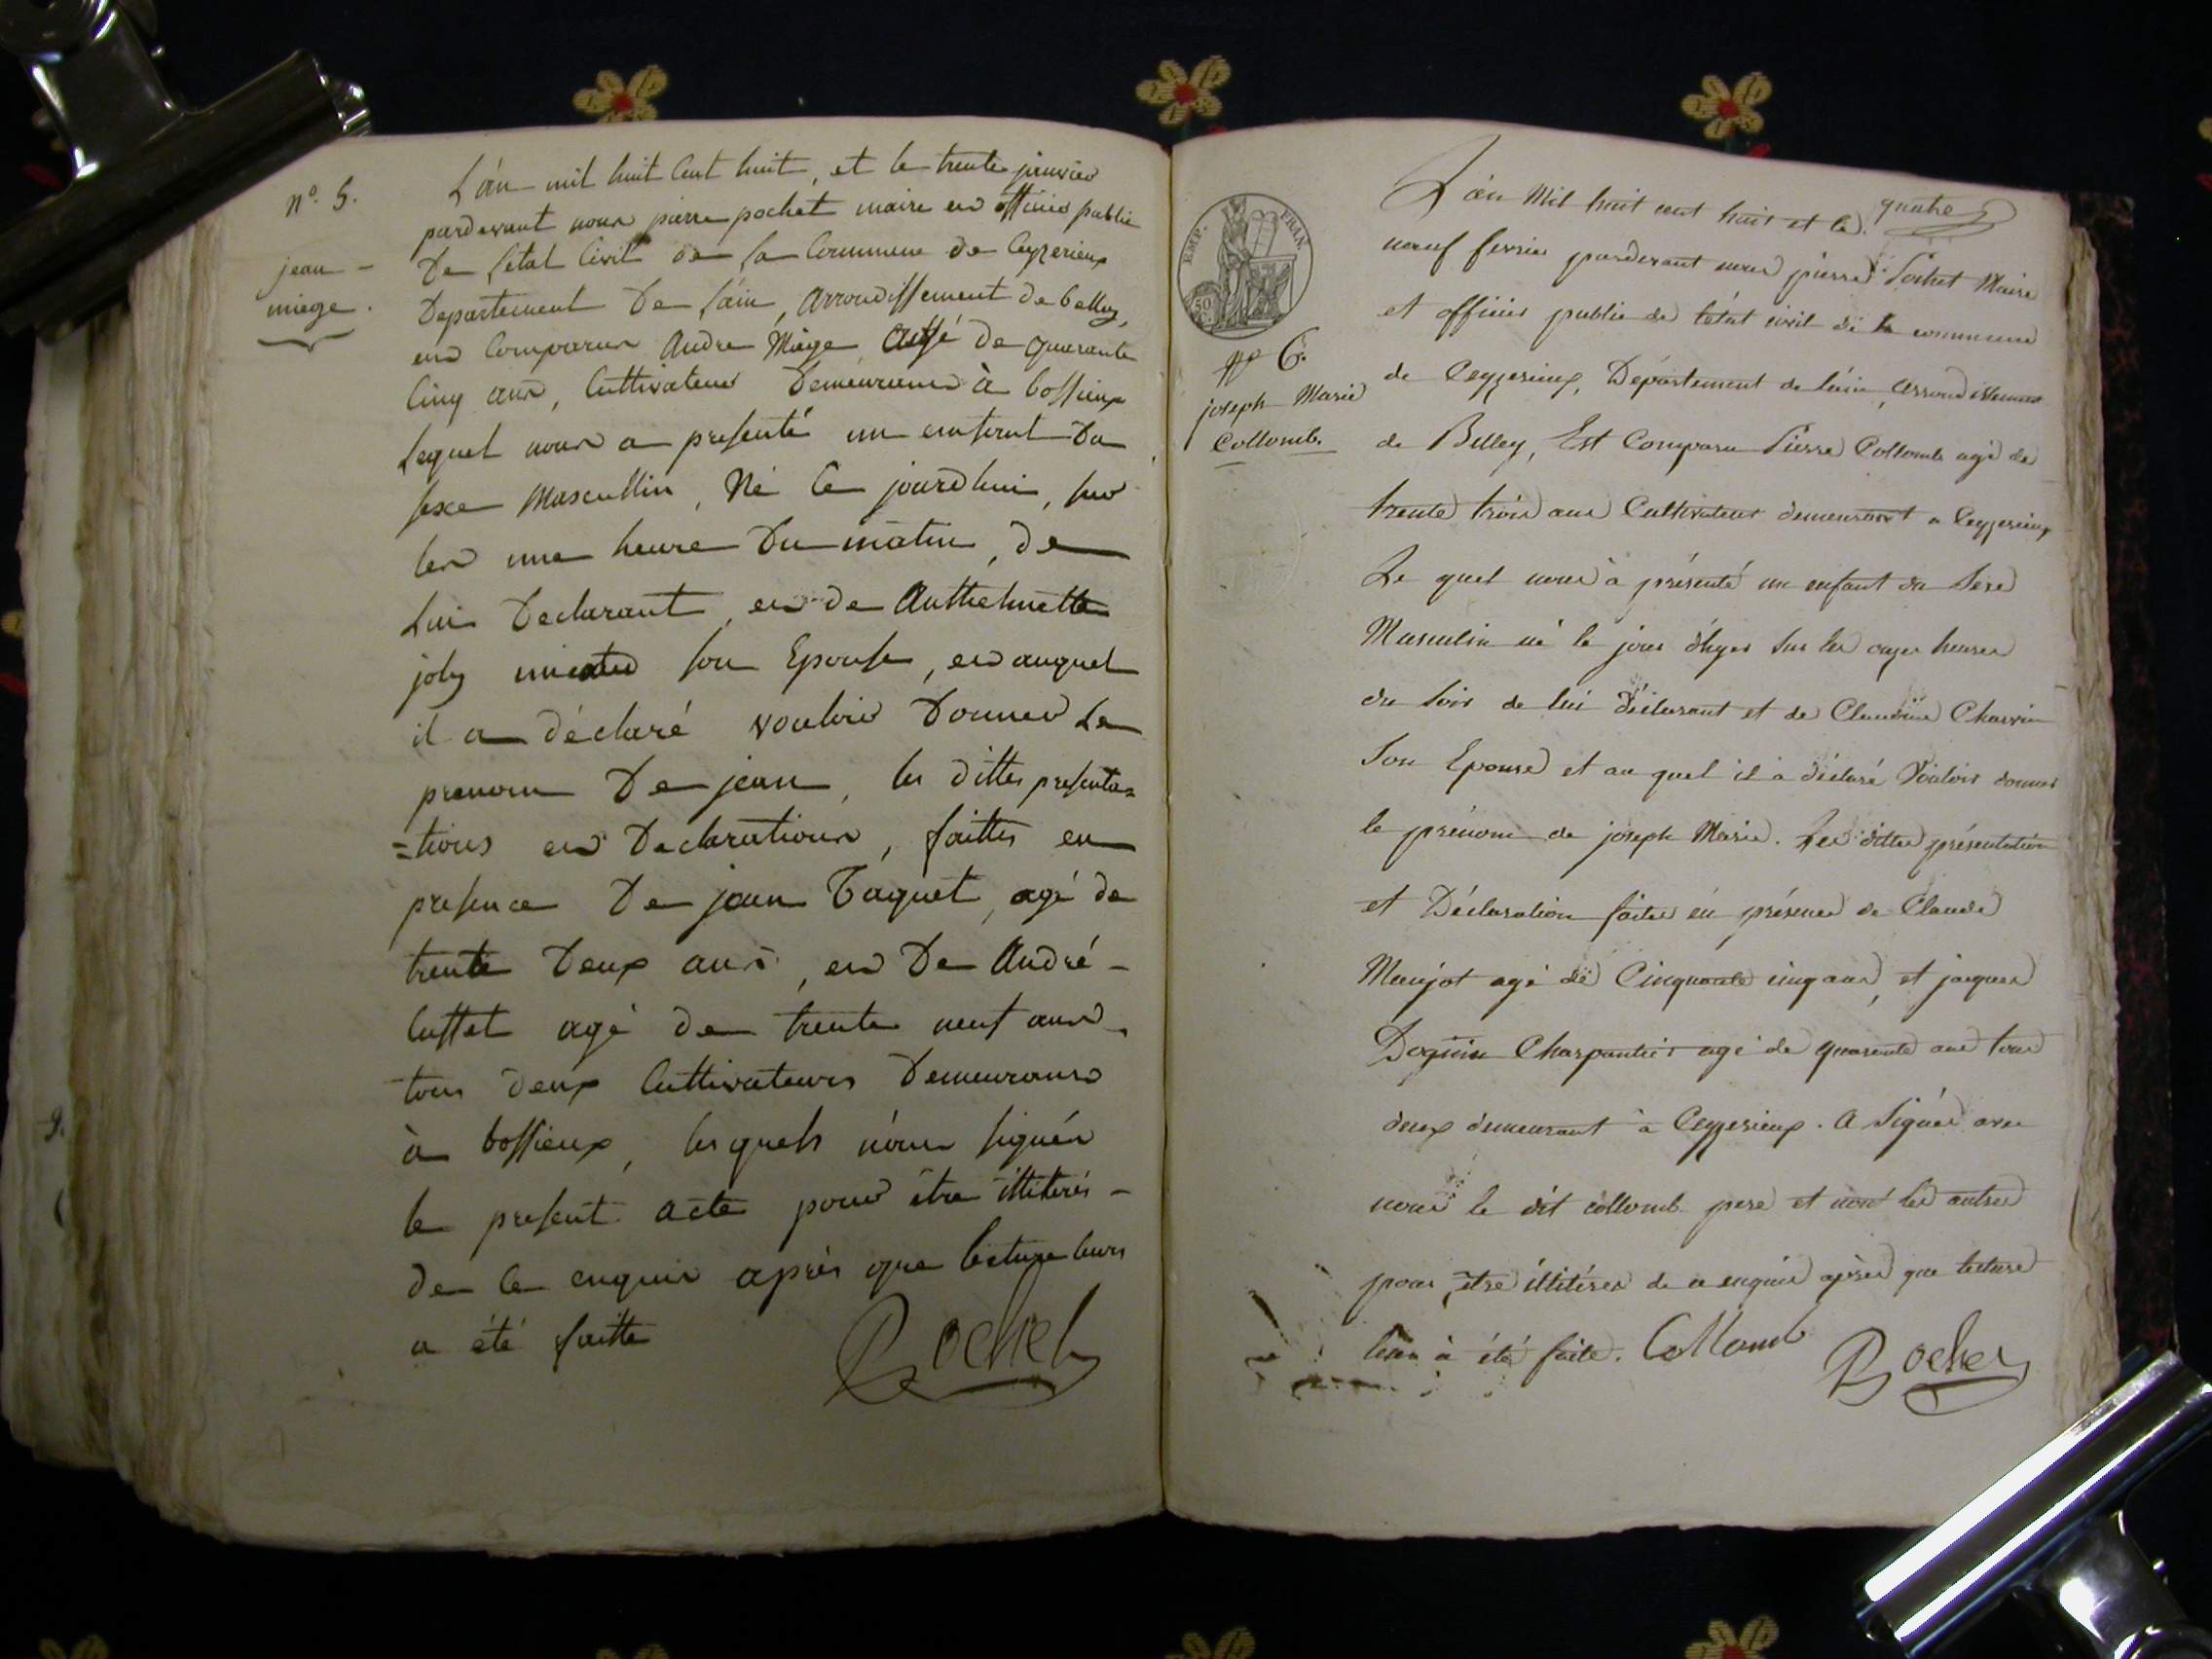 nº. 5.
jean -
miege.
L'án mil huit Cent huit, et le trente janvier
pardevant nous pierre pochet maire et officier public
De l'état Civil de la Commune de Ceyzerieux
Departement De l'ain, arrondissement de belley,
est Comparu André Miège, agé de quarante
Cinq ans, Cultivateur Demeurant à bossieux
Lequel nous a presenté un enfant Du
sexe Mascullin, Né Ce jourd'hui, sur
les une heure Du matin, de
Lui Declarant, et de Anthelmette
joly son Epouse, et auquel
il a déclaré vouloir Donner Le
prenom De jean, les dittes presenta=
=tions et Declarations, faittes en
presence De jean Taquet, agé de
trente Deux ans, et De André -
Cuttet agé de trente neuf ans,
tous deux Cultivateurs Demeurans
à bossieux, lesquels n'ont signés
le present acte pour être illiterés -
de Ce enquis après que lecture leurs
a été faitte
Pochet
EMP. FRAN.
50
nº 6.
joseph Marie
Collomb.
quatre
L'án Mil huit cent huit et le
neuf fevrier pardevant nous pierre Pochet Maire
et officier public de l'état civil de la commune
de Ceyzerieux, Département de l'ain, arrondissement
de Belley, Est Comparu Pierre Collomb agé de
trente trois ans Cultivateur demeurant a Ceyzerieux
Le quel nous à présenté un enfant du Sexe
Masculin né le jour d'hyer sur les onze heures
du soir de lui déclarant et de Claudine Charvin
Son Epouse et au quel il à déclaré Vouloir donner
le prénom de joseph Marie. Les dittes présentation
et Déclaration faites en présence de Claude
Maujot agé de Cinquante cinq ans, et jacques
Doguin Charpentier agé de quarente ans tous
deux demeurant à Ceyzerieux. A Signés avec
nous le dit collomb pere et non les autres
pour être illitéres de ce enquis après que lecture
leur à été faite. Collomb
Pochet